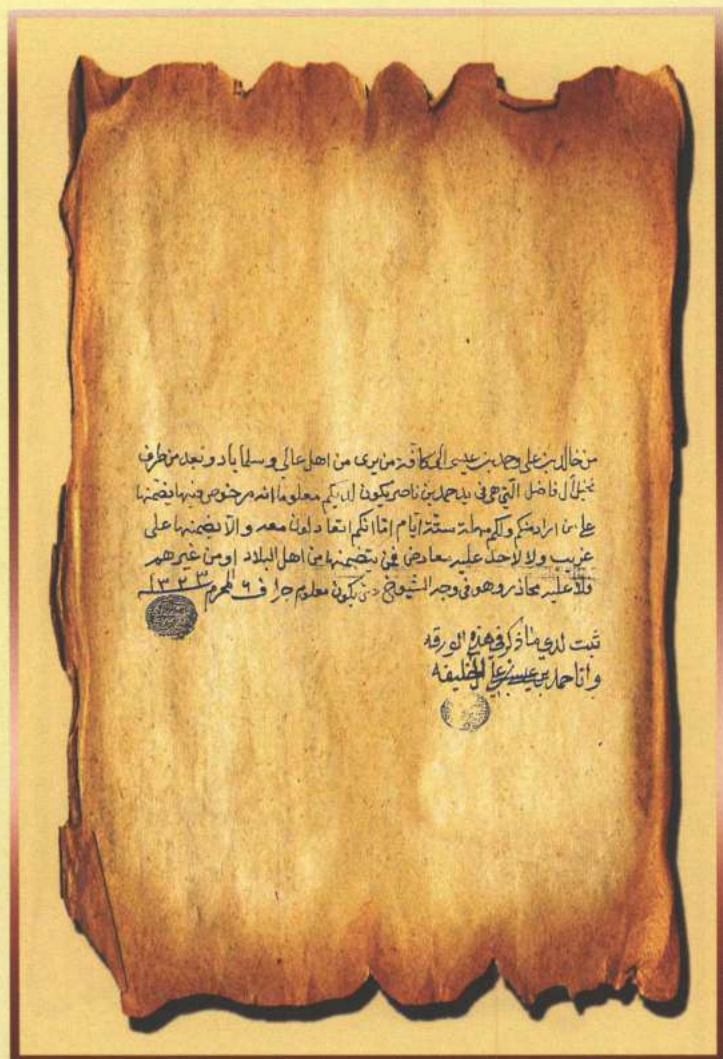 من خالد بن علي وحمد بن عيسى الى كافة من يرى من اهل عالي وسلماباد وبعد من طرف
نخيل آل فاضل التي هي في يد حمد بن ناصر يكون لديكم معلوما انه مرخوص فيها يضمنها
على من اراد منكم ولكم مهلة ستة ايام اما انكم اتعادلون معه والا يضمنها على
غريب ولا لاحد عليه معارض في يتضمنها من اهل البلاد او من غيرهم
فلا عليه محاذر وهو في وجه الشيوخ يكون معلوم جرا في ٦ المحرم ١٣٢٣
ثبت لدي ما ذكر في هذه الورقه
وانا حمد بن عيسى بن علي الخليفه